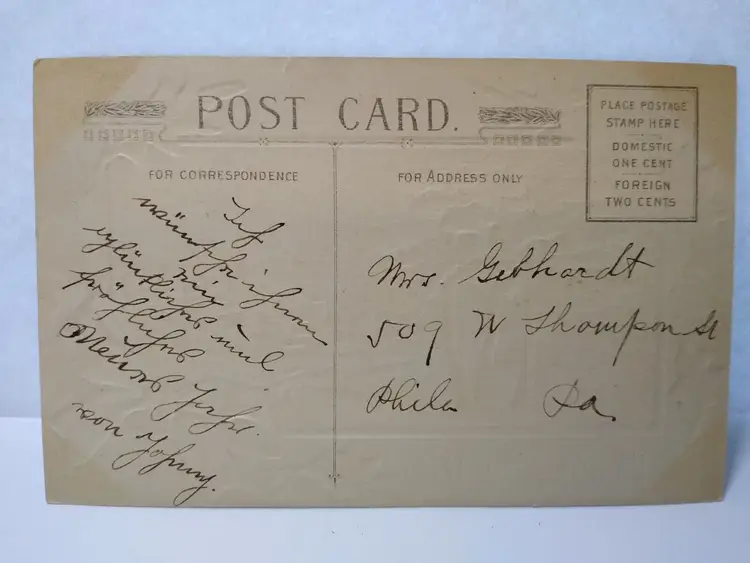 POST CARD.
FOR CORRESPONDENCE
Ich
wünsche ihnen
ein
glückliches und
fröhliches
Neues Jahr.
von Johnny.
FOR ADDRESS ONLY
Mrs. Gebhardt
509 W Thompson St
Phila Pa.
PLACE POSTAGE
STAMP HERE
DOMESTIC
ONE CENT
FOREIGN
TWO CENTS